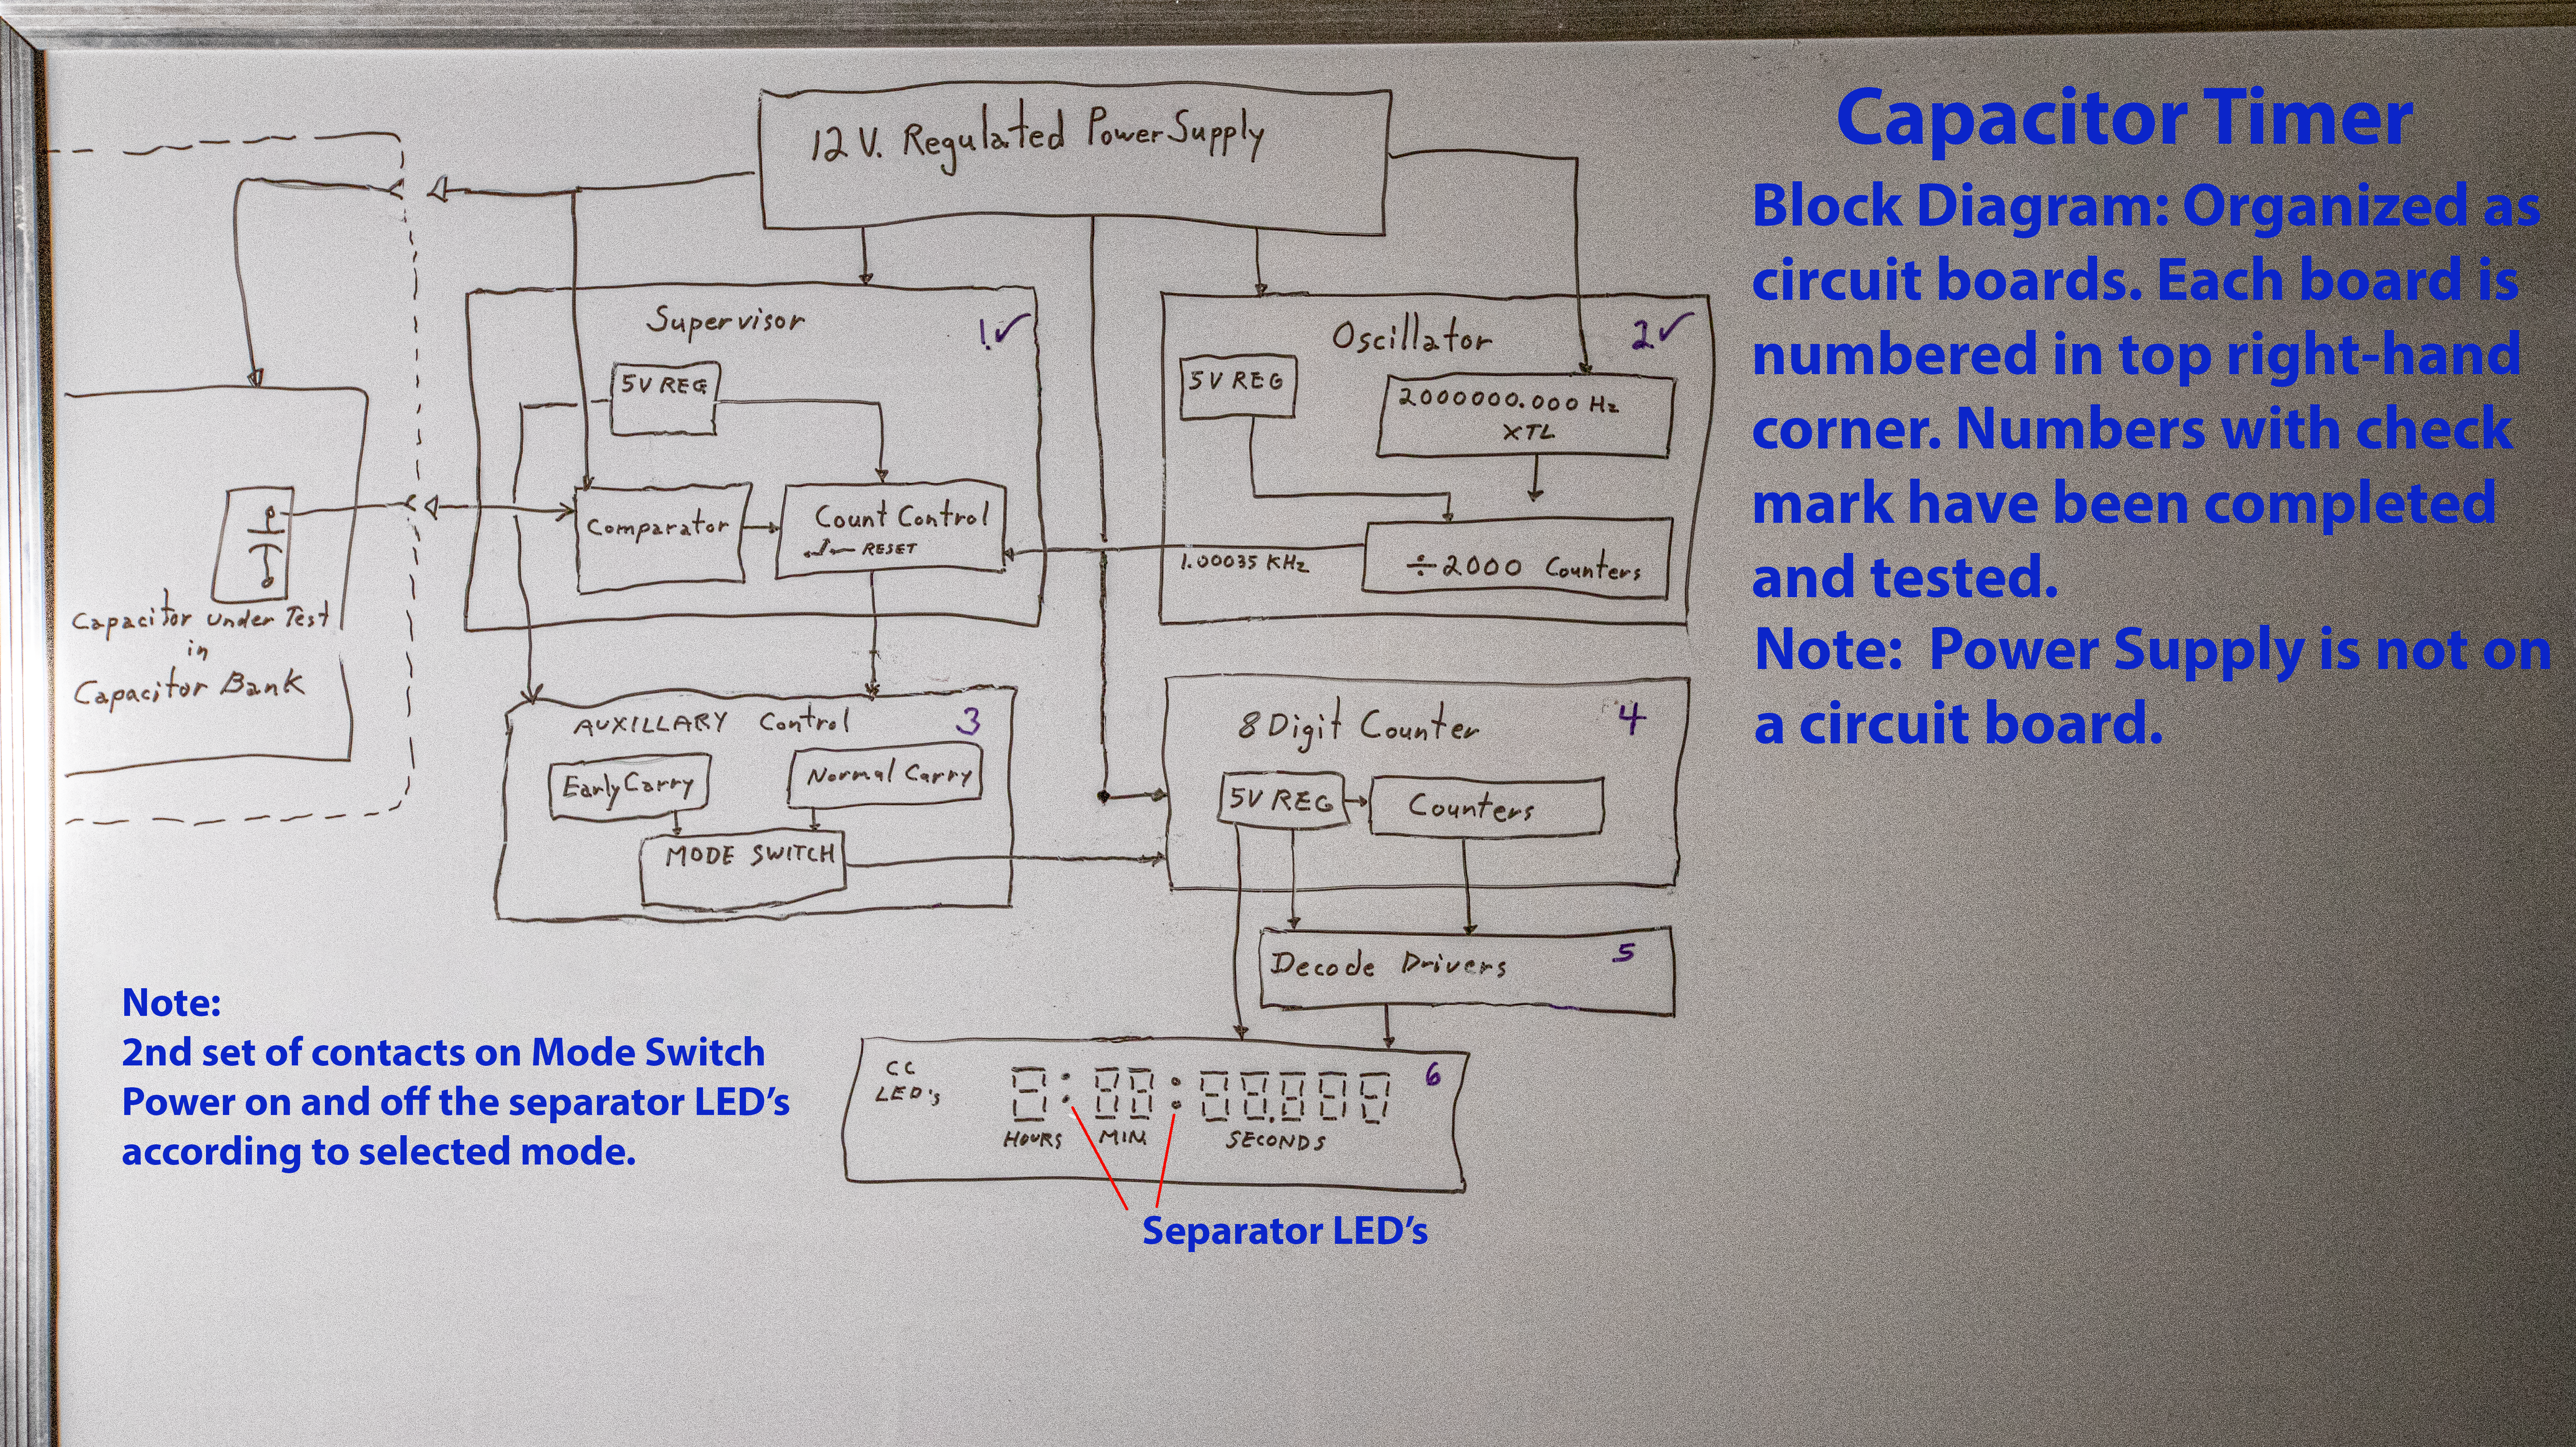 Capacitor Timer
Block Diagram: Organized as
circuit boards. Each board is
numbered in top right-hand
corner. Numbers with check
mark have been completed
and tested.
Note: Power Supply is not on
a circuit board.
12 V. Regulated Power Supply
Supervisor
1.✓
5V REG
Comparator
Count Control
RESET
Oscillator
2✓
5V REG
2000000.000 Hz
XTL
÷2000 Counters
1.00035 KHz
Capacitor Under Test
in
Capacitor Bank
AUXILLARY Control
3
Early Carry
Normal Carry
MODE SWITCH
8 Digit Counter
4
5V REG
Counters
Decode Drivers
5
CC
LED's
6
8:88:88.888
HOURS MIN SECONDS
Separator LED’s
Note:
2nd set of contacts on Mode Switch
Power on and off the separator LED’s
according to selected mode.